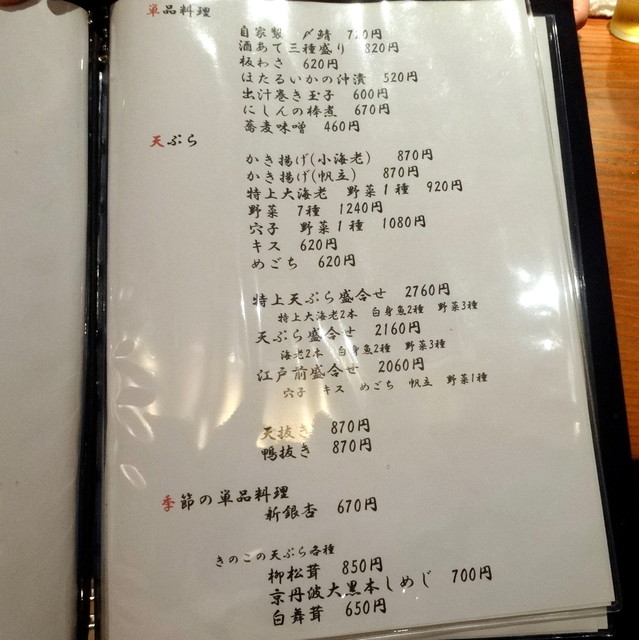 単品料理
自家製 〆鯖 720円
酒あて三種盛り 820円
板わさ 620円
ほたるいかの沖漬 520円
出汁巻き玉子 600円
にしんの棒煮 670円
蕎麦味噌 460円
天ぷら
かき揚げ(小海老) 870円
かき揚げ(帆立) 870円
特上大海老 野菜1種 920円
野菜 7種 1240円
穴子 野菜1種 1080円
キス 620円
めごち 620円
特上天ぷら盛合せ 2760円
特上大海老2本 白身魚2種 野菜3種
天ぷら盛合せ 2160円
海老2本 白身魚2種 野菜3種
江戸前盛合せ 2060円
穴子 キス めごち 帆立 野菜1種
天抜き 870円
鴨抜き 870円
季節の単品料理
新銀杏 670円
きのこの天ぷら各種
柳松茸 850円
京丹波大黒本しめじ 700円
白舞茸 650円